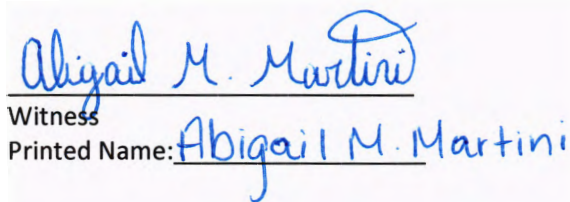 Abigail M. Martini
Witness
Printed Name: Abigail M. Martini